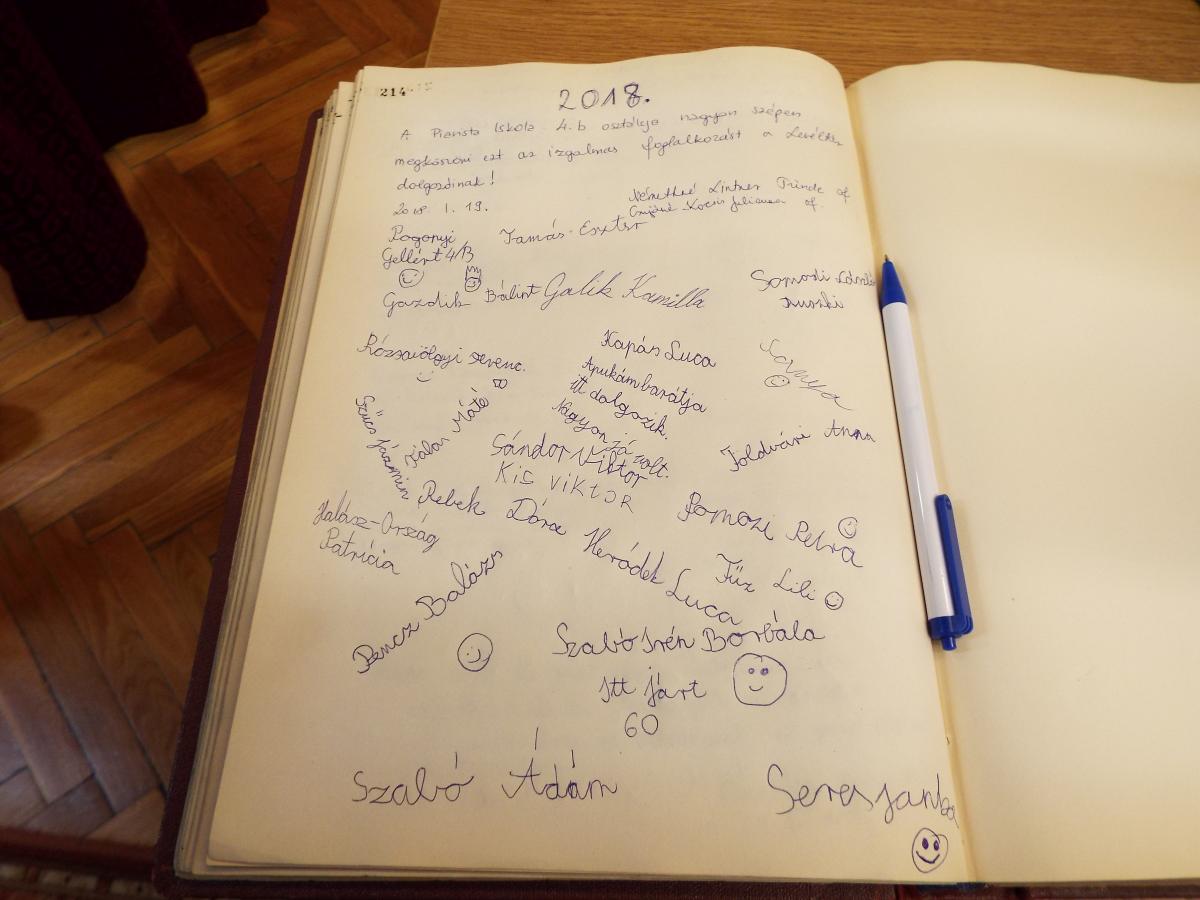 214
2018.
A Piarista Iskola 4. b osztálya nagyon szépen
megköszöni ezt az izgalmas foglalkozást a Levéltár
dolgozóinak!
2018. 1. 19.
Némethné Lintner Tünde of
Kocsis Julianna of.
Pogonyi
Gellért 4/B
Tamás Eszter
Gazdik Bálint
Galik Kamilla
Somodi
Rózsavölgyi Ferenc.
Kapás Luca
Apukám barátja
itt dolgozik.
Nagyon jó volt.
Szűcs Jázmin
Máté
Földvári Anna
Sándor Viktor
Kis VIKTOR
Rebek Dóra
Pomozi Petra
Halász-Ország
Patrícia
Heródek Luca
Füx Lili
Pencz Balázs
Szabó Irén Borbála
Itt járt
60
Szabó Ádám
Seres